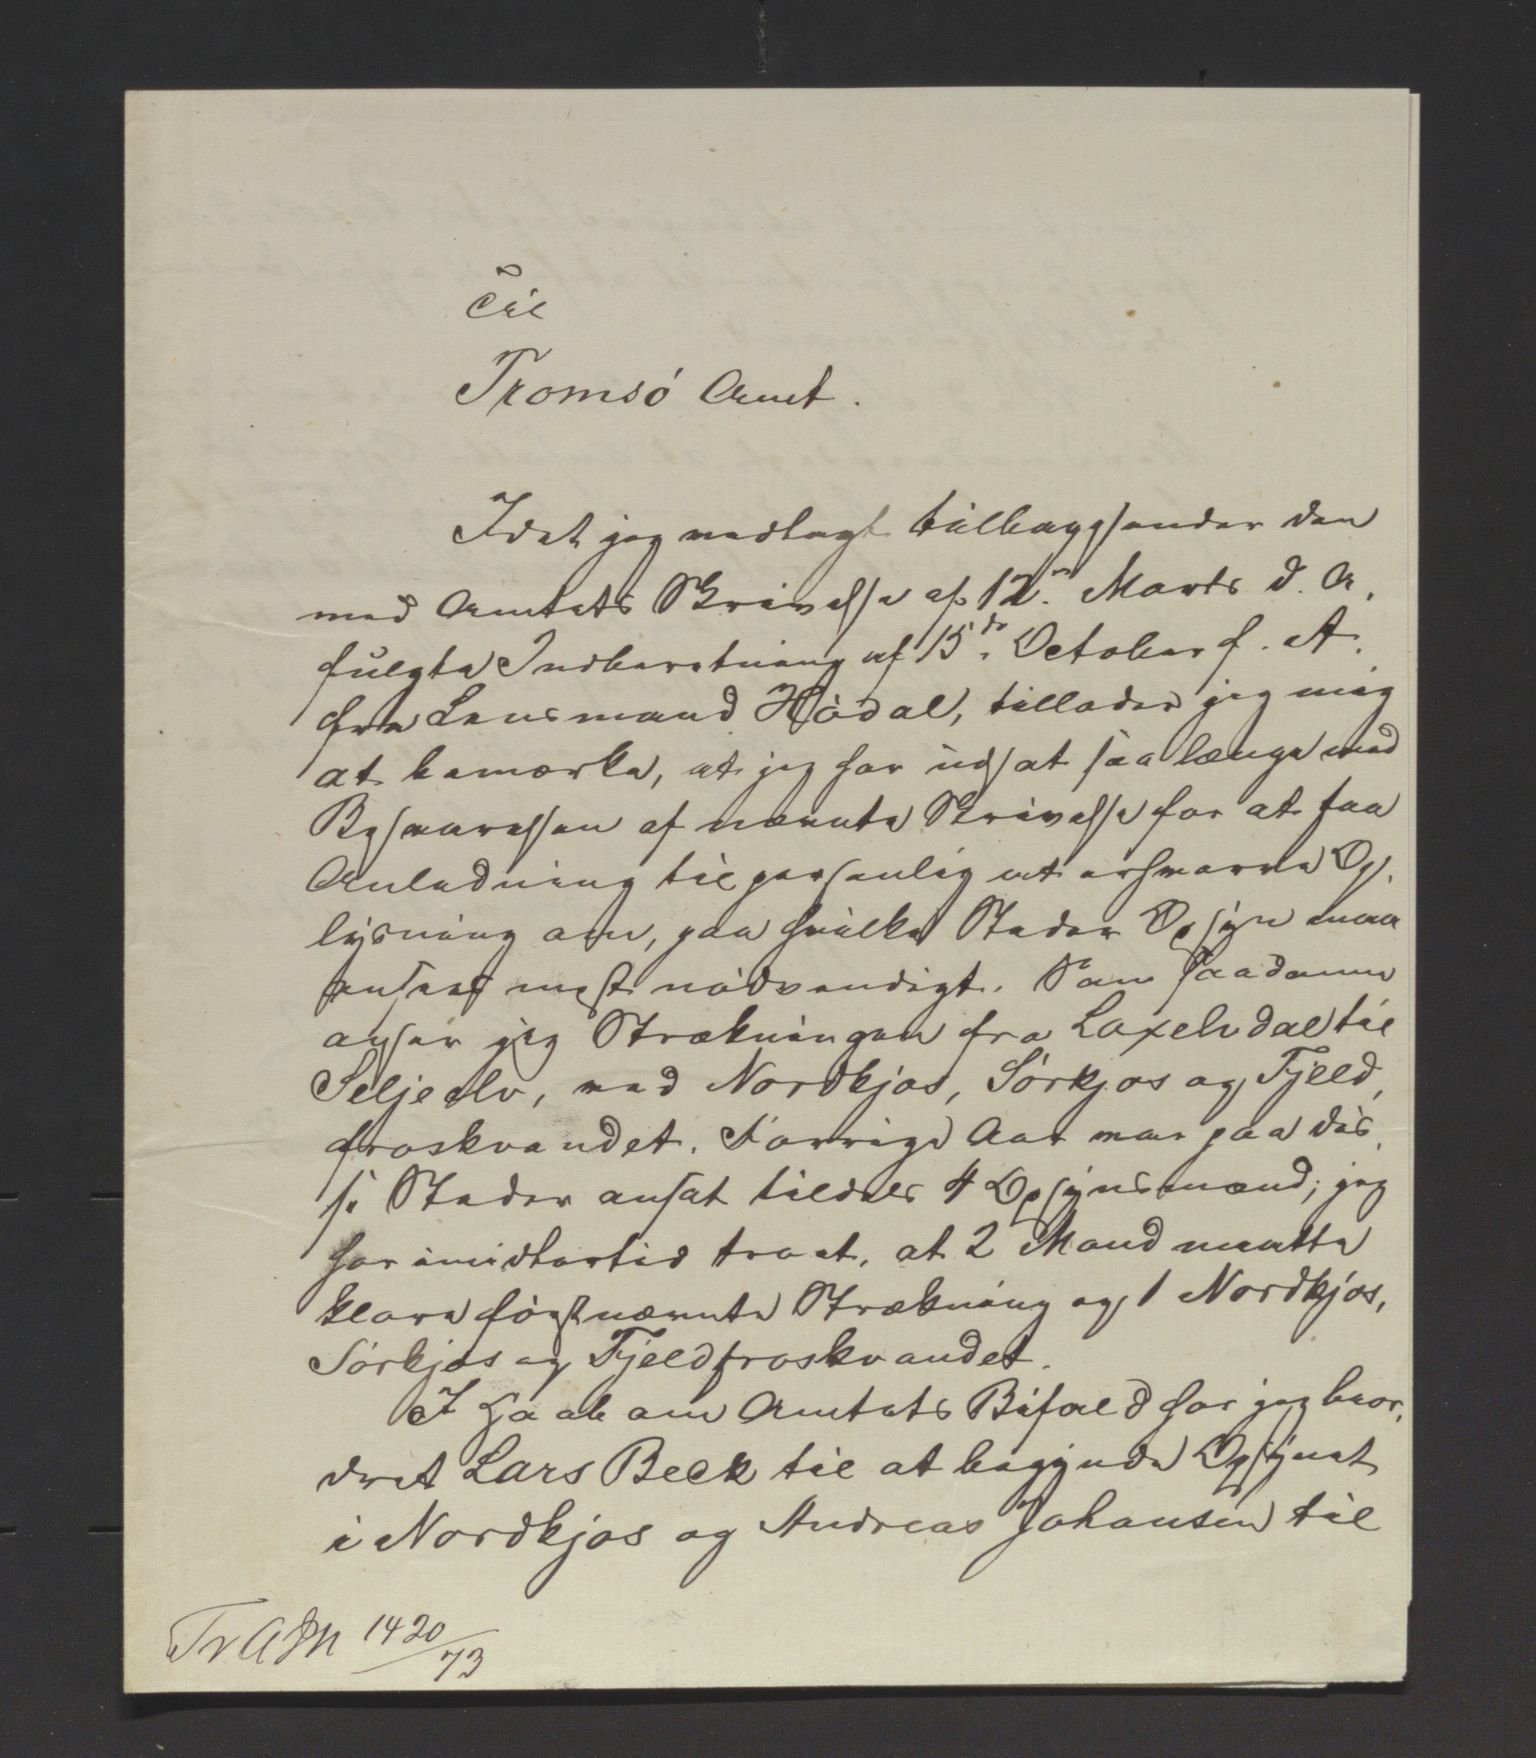 Til
Tromsö Amt.
Idet jeg vedlagt tilbagesender den
med Amtets Skrivelse af 12te Marts d. A.
fulgte Indberetning af 15de October f. A.
fra Lensmand Hödal, tillader jeg mig
at bemærke, at jeg har udsat saa længe med
Besvarelsen af nævnte Skrivelse for at faa
Anledning til personlig at erhverve Op-
lysning om, paa hvilke Steder Opsyn maa
ansees mest nödvendigt. Som saadanne
anser jeg Strækningen fra Laxelvdal til
Seljeelv, ved Nordkjos, Sörkjos og Fjeld-
froskvandet. Forrige Aar var paa dis-
se Steder ansat tildels 4 Opsynsmænd; jeg
har imidlertid troet, at 2 Mand maatte
klare förstnævnte Strækning og 1 Nordkjos,
Sörkjos og Fjeldfroskvandet.
I Haab om Amtets Bifald har jeg beor-
dret Lars Beck til at begynde Opsynet
i Nordkjos og Andreas Johansen til
Tr A J N 1420/73